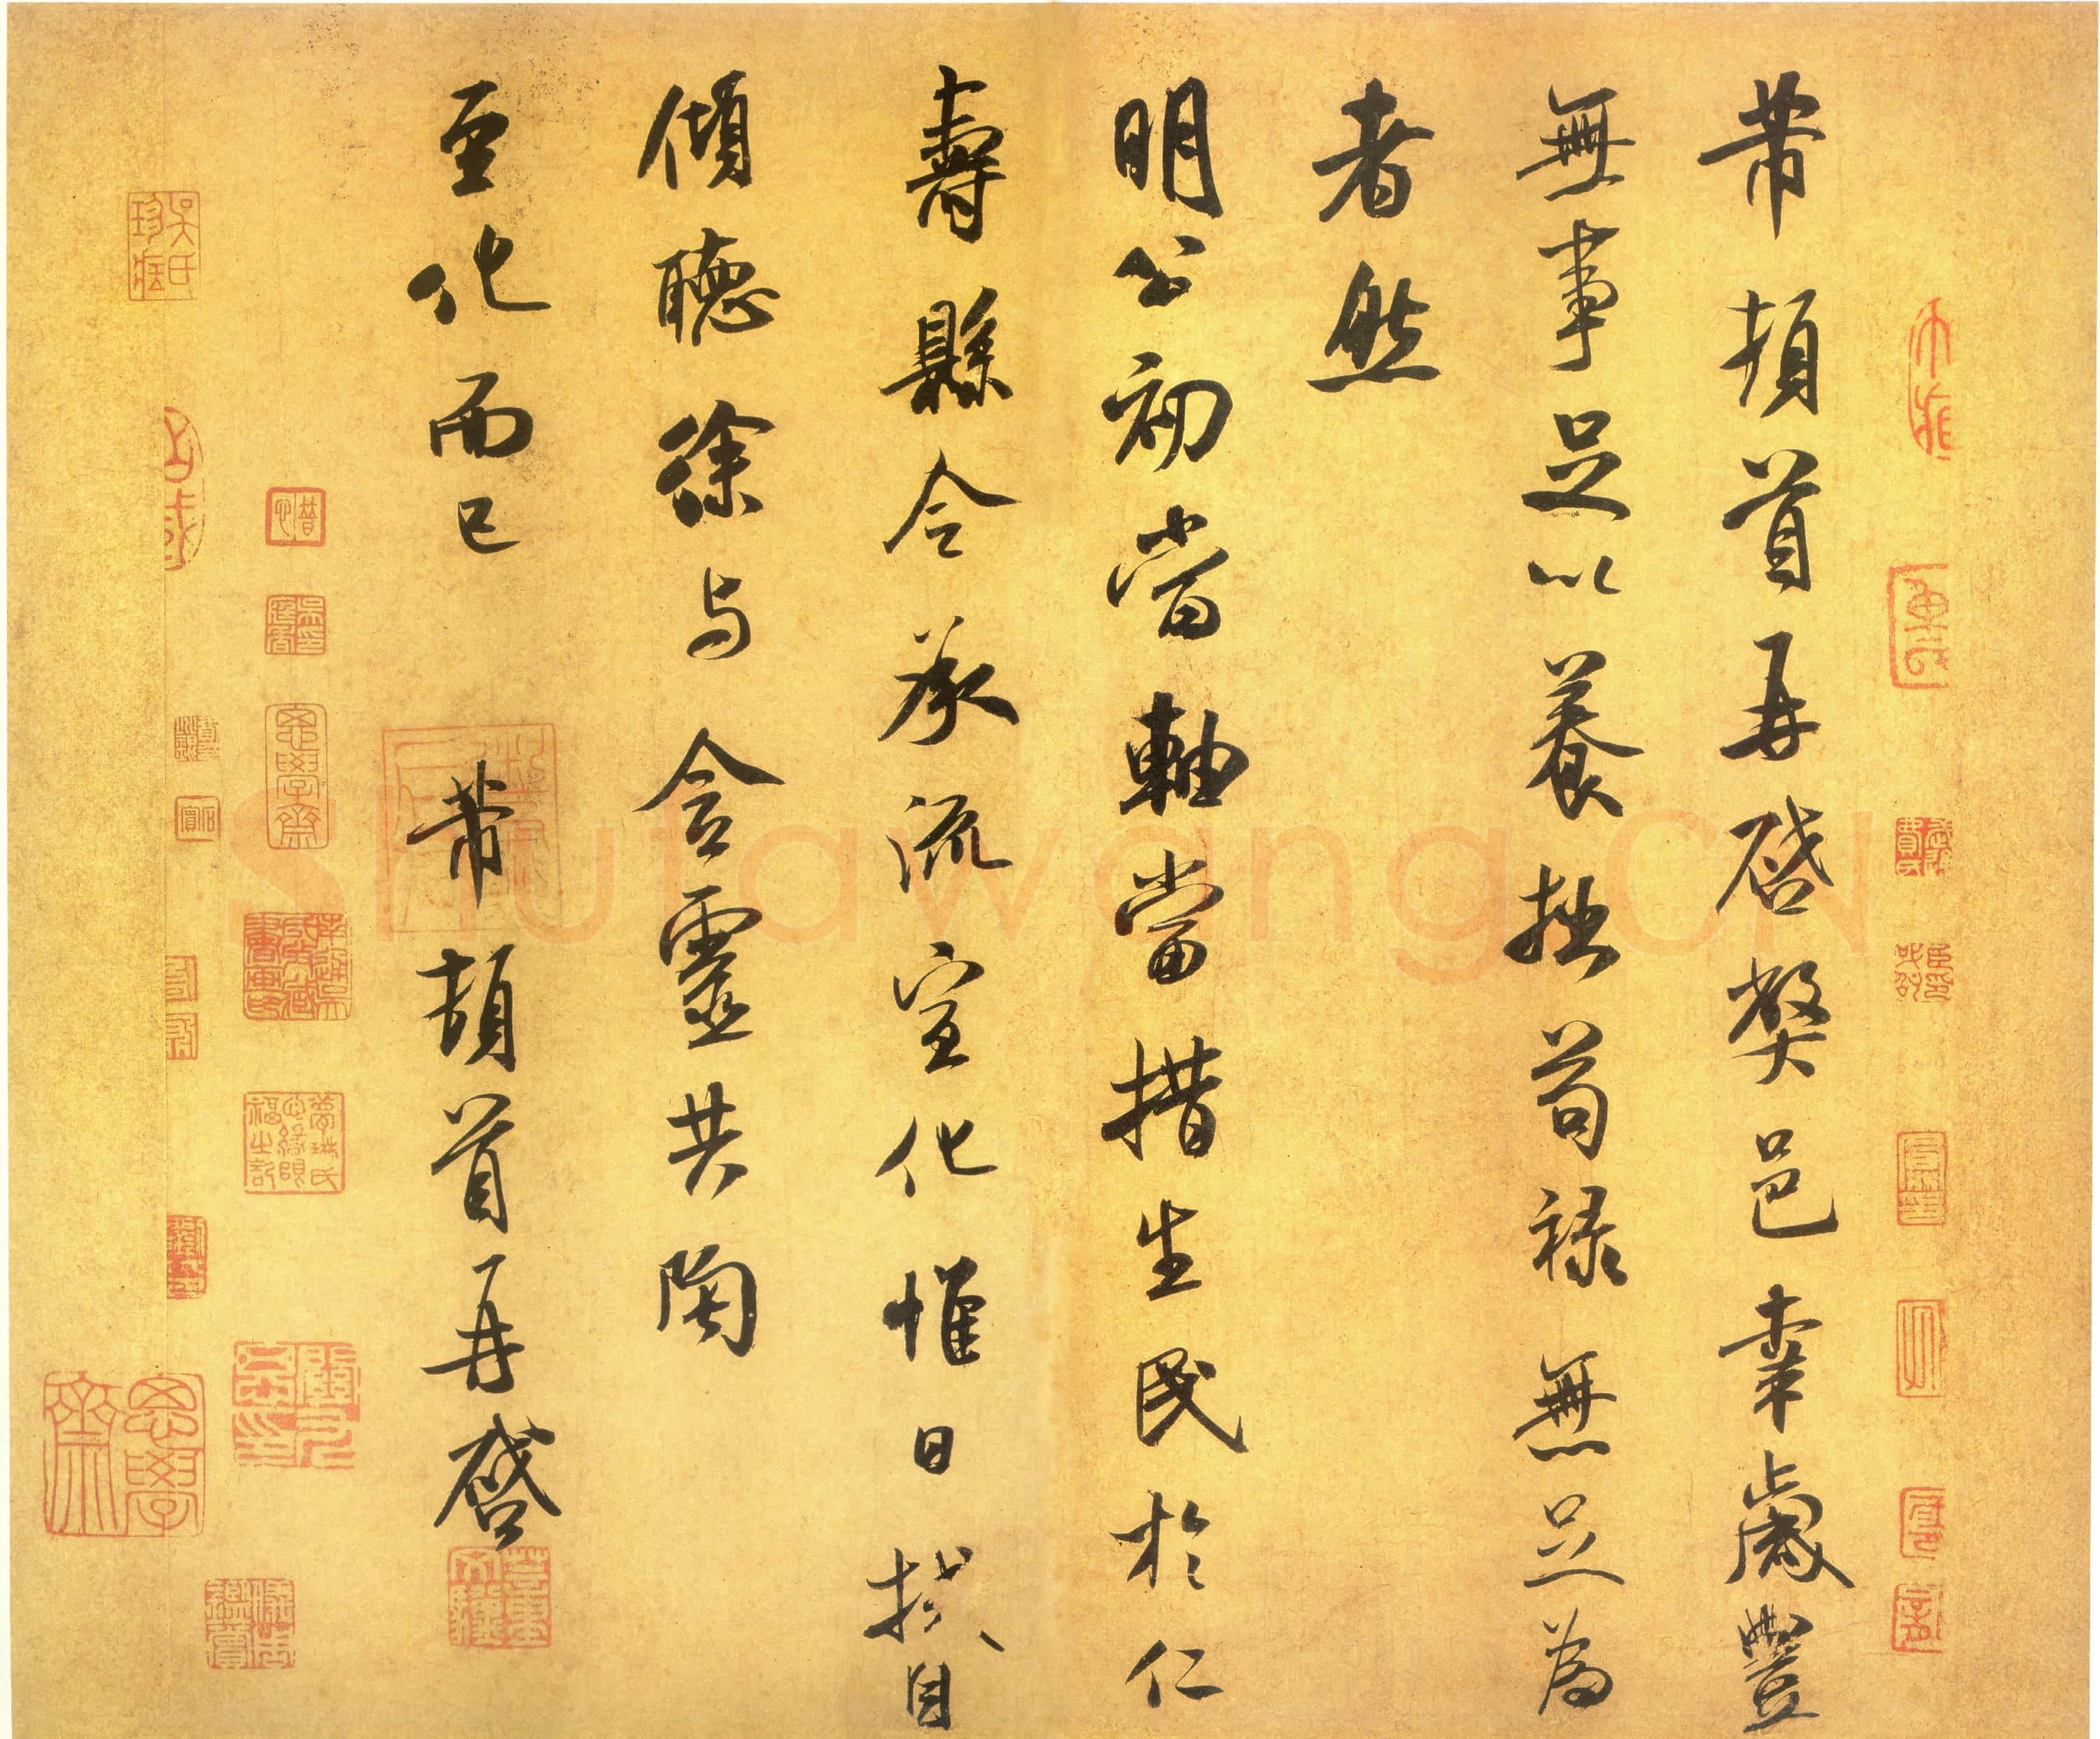 芾頓首再啓弊邑幸歲豐
無事足以養拙苟祿無足爲
者然
明公初當軸當措生民於仁
壽縣令承流宣化惟日拭目
傾聽徐與含靈共陶
至化而已 芾頓首再啓
吳氏珍藏
思學齋
思學齋
Shufawang.CN